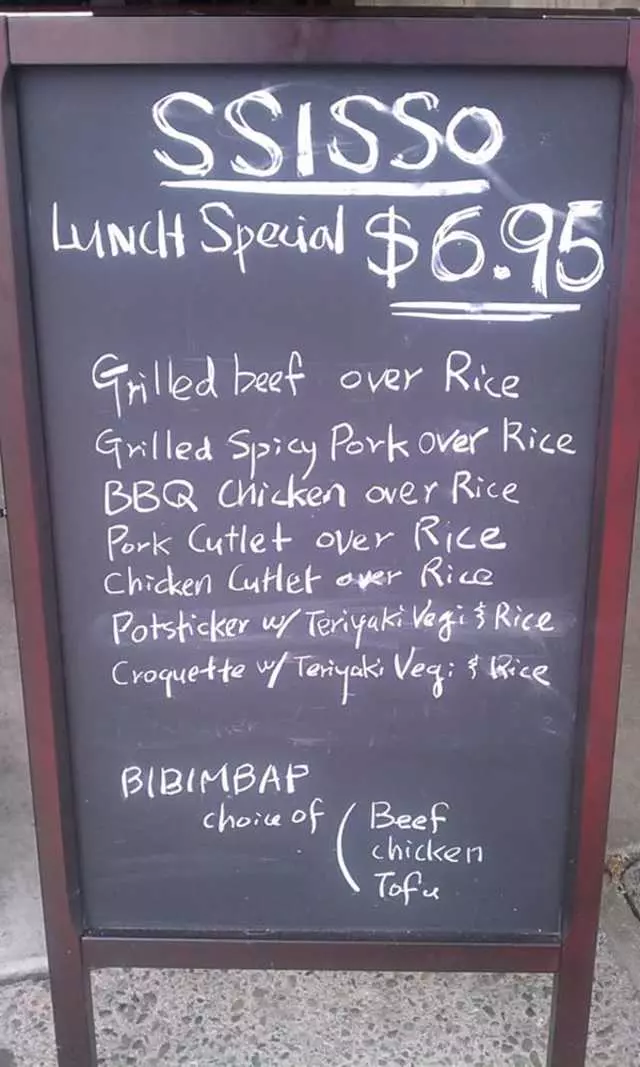 SSISSO
LUNCH Special $6.95
Grilled beef over Rice
Grilled Spicy Pork over Rice
BBQ Chicken over Rice
Pork Cutlet over Rice
Chicken Cutlet over Rice
Potsticker w/ Teriyaki Vegi & Rice
Croquette w/ Teriyaki Vegi & Rice
BIBIMBAP
choice of ( Beef
chicken
Tofu